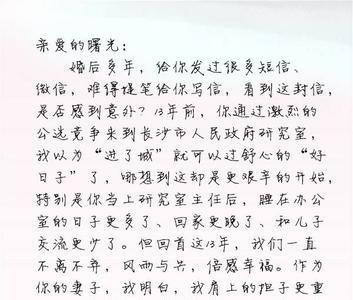 亲爱的曙光：
婚后多年，给你发过很多短信、
微信，难得提笔给你写信，看到这封信，
是否感到意外？13年前，你通过激烈的
公选竞争来到长沙市人民政府研究室，
我以为“进了城”就可以过舒心的“好
日子”了，哪想到这却是更艰辛的开始，
特别是你当上研究室主任后，睡在办公
室的日子更多了、回家更晚了、和儿子
交流更少了。但回首这13年，我们一直
不离不弃，风雨与共，倍感幸福。作为
你的妻子，我明白，我肩上的担子更重